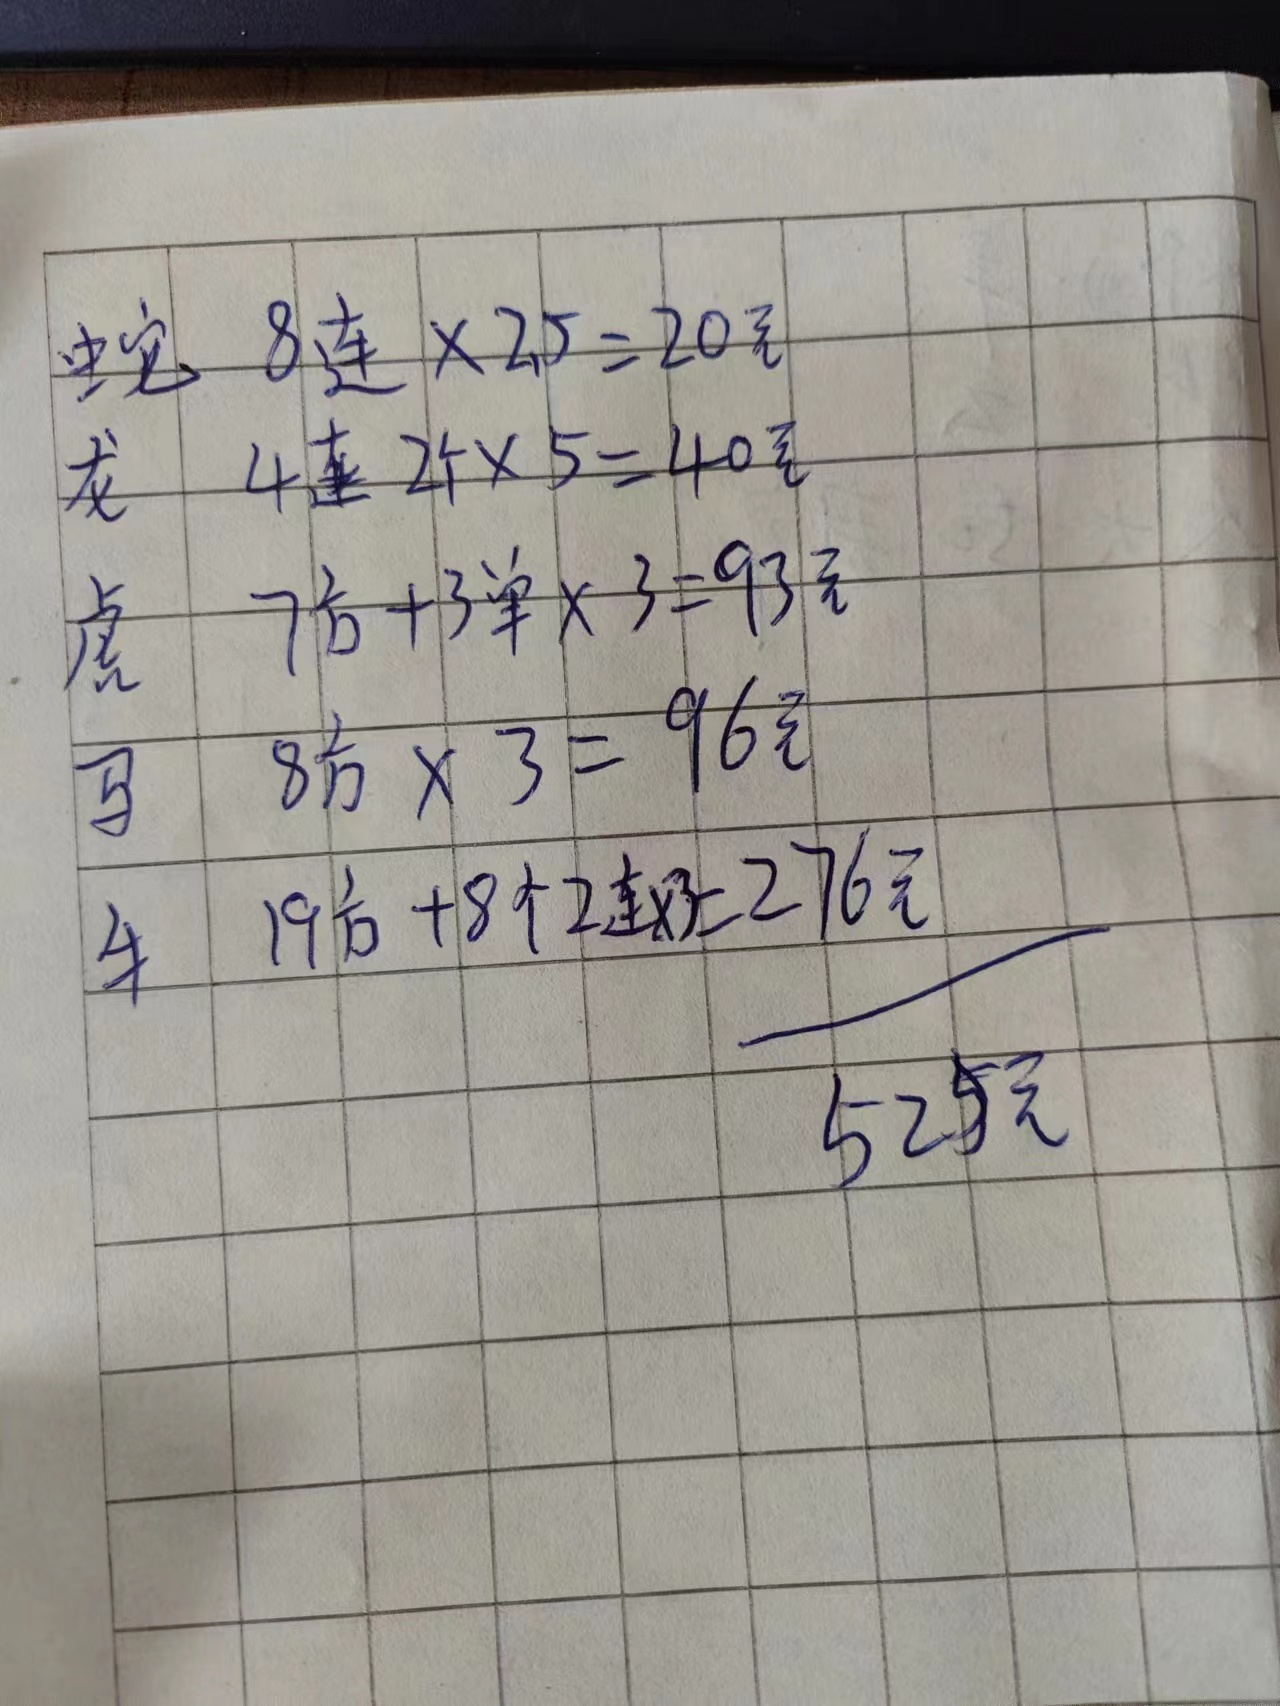 蛇 8连×2.5=20元
龙 4连2个×5=40元
虎 7方+3单×3=93元
马 8方×3=96元
牛 19方+8个2连×3=276元
525元